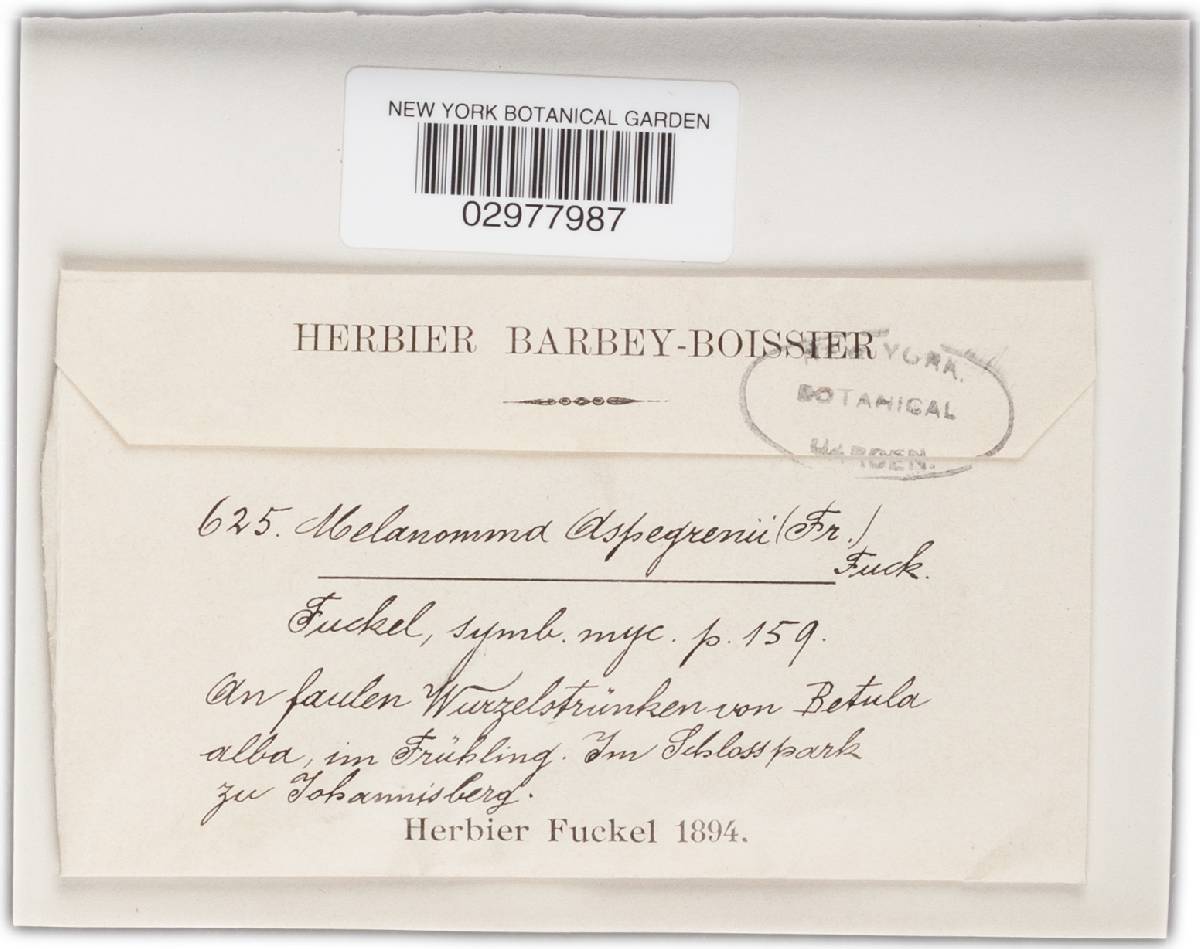 NEW YORK BOTANICAL GARDEN
02977987
HERBIER BARBEY-BOISSIER
NEW YORK
BOTANICAL
GARDEN.
625. Melanomma Aspegrenii (Fr.)
Fuck.
Fuckel, symb. myc. p. 159.
An faulen Wurzelstrünken von Betula
alba, im Frühling. Im Schlosspark
zu Johannisberg.
Herbier Fuckel 1894.